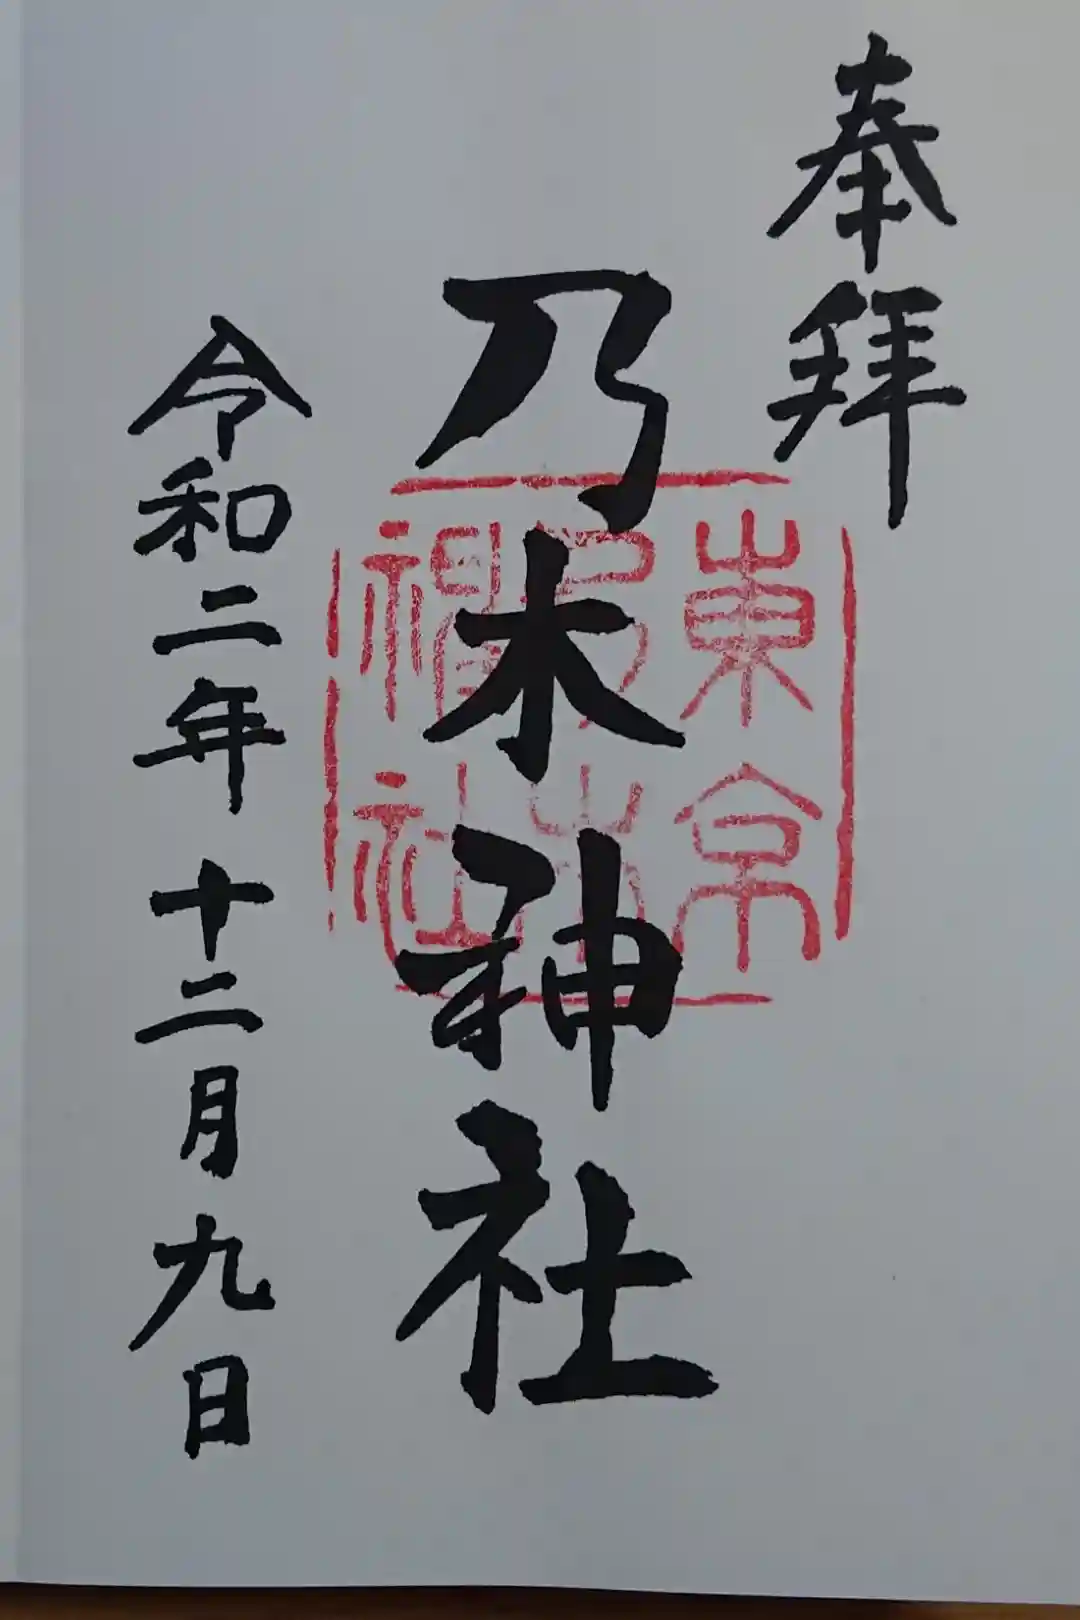 奉拜
乃木神社
東京
乃木
神社
令和二年十二月九日